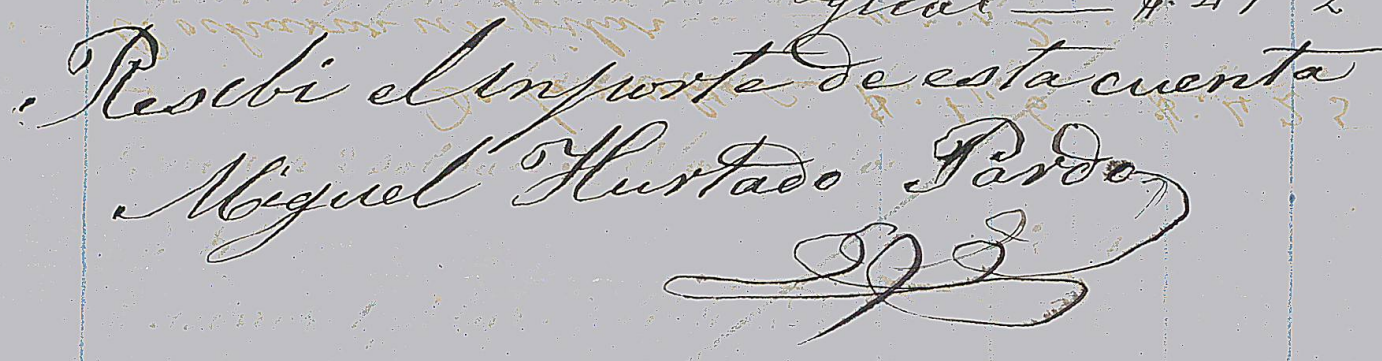 Igual — $ 41 2
Resibi el inporte de esta cuenta
Miguel Hurtado Pardo